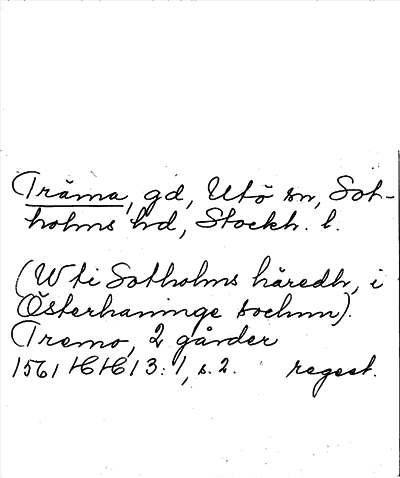 Träma, gd, Utö sn, Sot-
holms hd, Stockh. l.
(W ti Sotholms häredh, i
Österhaninge sochnn).
Tremo, 2 gårder
1561 HH 13:1, s. 2. regest.